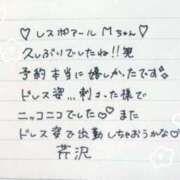 ♡レスポアール Mちゃん♡
久しぶりでしたね!!
予約本当に嬉しかったです
ドレス姿...刺さった様で
ニッコニコでした♡また
ドレス姿で出勤しちゃおうかな♡
芹沢